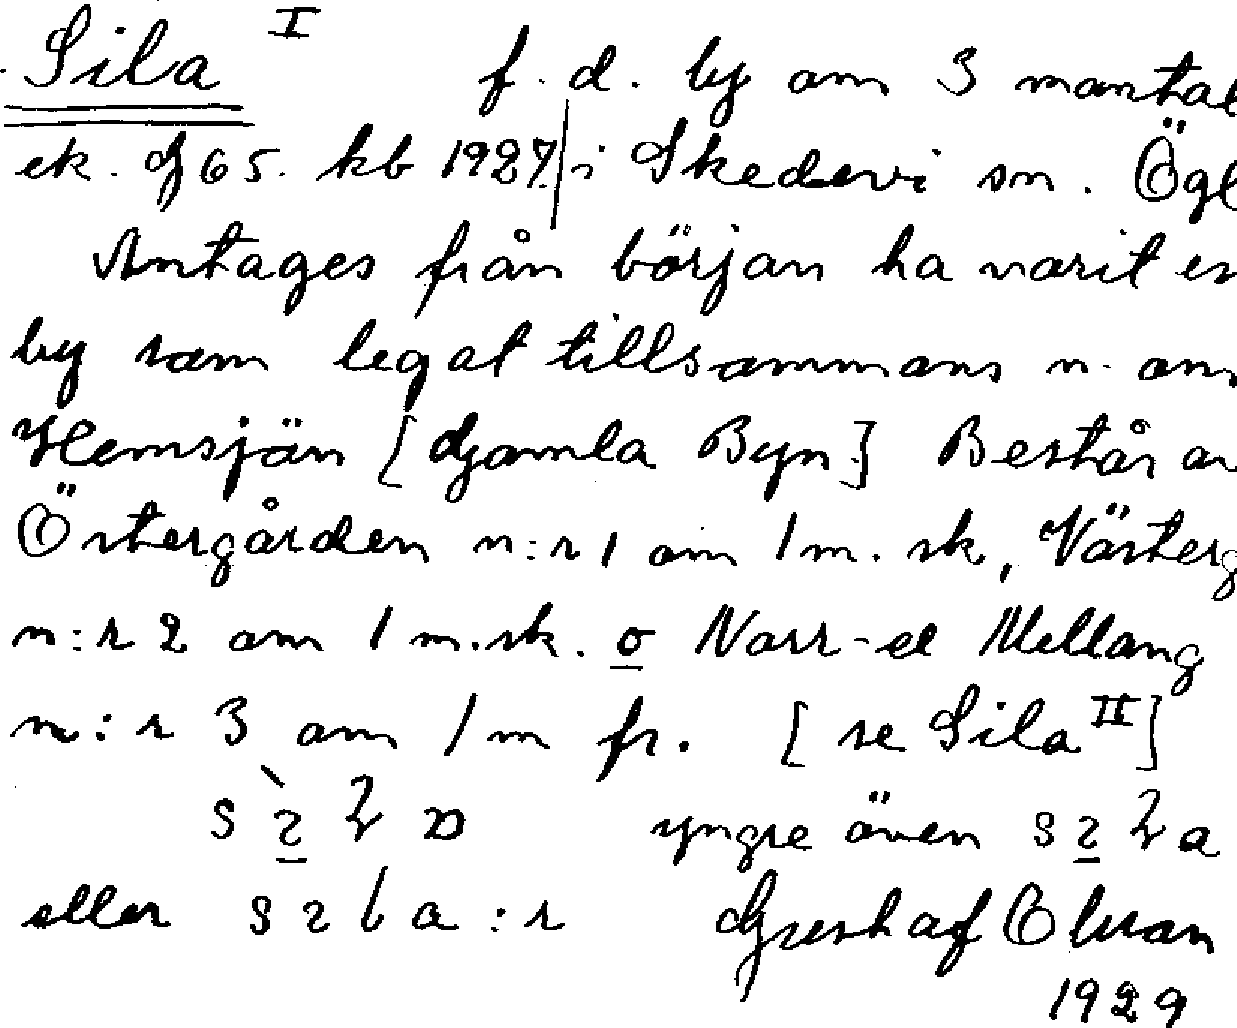 Sila I f. d. by om 3 mantal
ek. G 65. kb 1927 i Skedevi sn. Ögl
Antages från början ha varit en
by som legat tillsammans n. om
Hemsjön [Gamla Byn] Består av
Östergården n:r 1 om 1 m. sk, Västerg
n:r 2 om 1 m.sk. o Norr- el Mellang
n:r 3 om 1 m fr. [se Sila II]
yngre även
eller Gustaf Olsson
1929